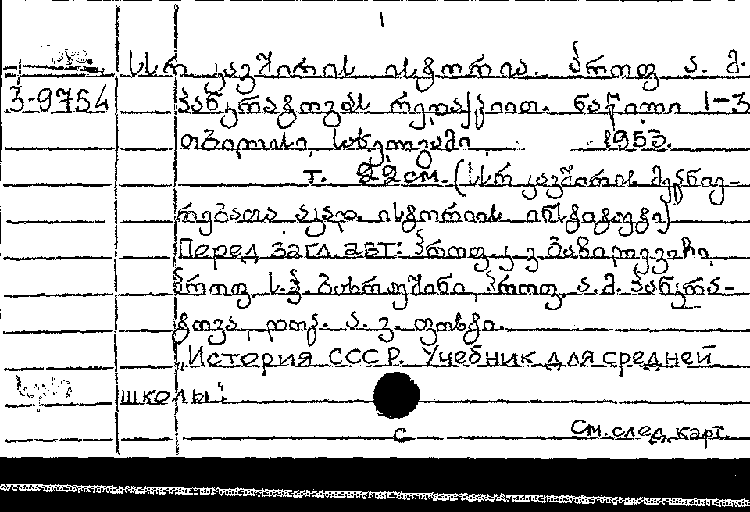 1
სსრ კავშირის ისტორია. პროფ. ა. მ.
3-9754 პანკრატოვას რედაქციით. ნაწილი 1-3
თბილისი, სახელგამი, 1953.
т. 22 см. (სსრ კავშირის მეცნიე-
რებათა აკად. ისტორიის ინსტიტუტი)
Перед загл. авт.: პროფ. კ. ვ. ბაზილევიჩი,
პროფ. ს. ვ. ბახრუშინი, პროფ. ა. მ. პანკრა-
ტოვა, დოც. ა. ვ. ფოხტი.
„История СССР. Учебник для средней
школы".
с
См. след. карт.